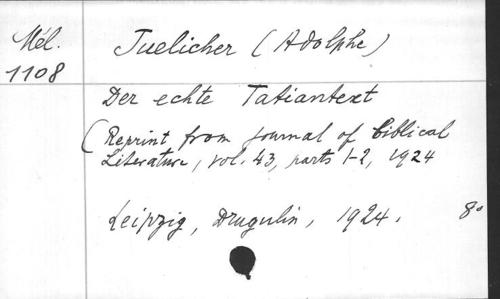 Mél.
1108
Juelicher (Adolphe)
Der echte Tatiantext
(Reprint from Journal of Biblical
Literature, vol. 43, parts 1-2, 1924
Leipzig, Drugulin, 1924. 8°